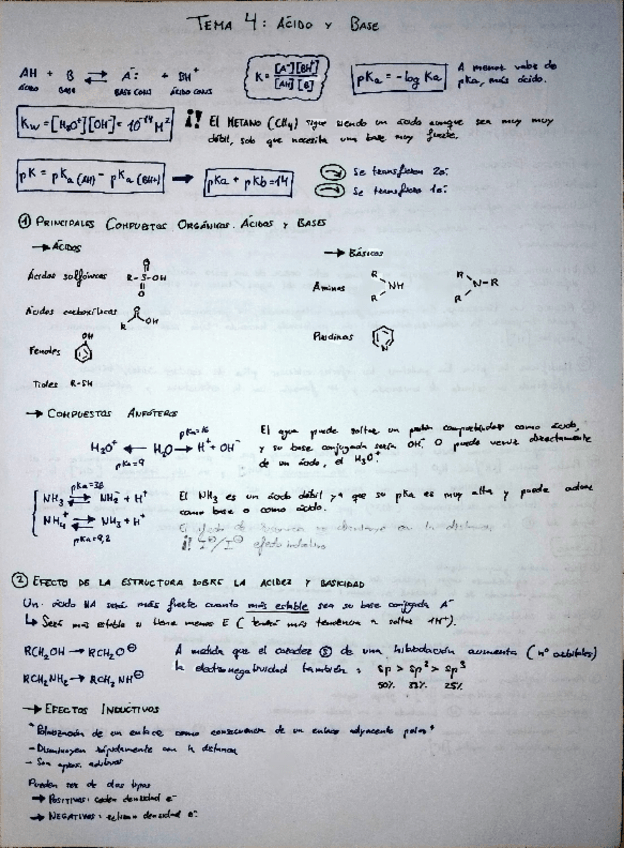 TEMA 4: ÁCIDO Y BASE
AH + B ⇌ A⁻: + BH⁺
ÁCIDO BASE BASE CONJ ÁCIDO CONJ
K = [A⁻][BH⁺] / [AH][B]
pKa = -log Ka
A menor valor de
pKa, más ácido.
Kw = [H₃O⁺][OH⁻] = 10⁻¹⁴ M²
¡! El METANO (CH₄) sigue siendo un ácido aunque sea muy muy
débil, solo que necesita una base muy fuerte.
pK = pKa (AH) - pKa (BH+) → pKa + pKb = 14
Se transfieren 2e⁻
Se transfiere 1e⁻
① PRINCIPALES COMPUESTOS ORGÁNICOS. ÁCIDOS Y BASES
→ ÁCIDOS
→ BÁSICOS
Ácidos sulfónicos R-S-OH O O
Aminas R R NH R R N-R
Ácidos carboxílicos R O OH
Fenoles OH
Piridinas N
Tioles R-SH
→ COMPUESTOS ANFÓTEROS
H₃O⁺ ← H₂O → H⁺ + OH⁻
pKa=16
El agua puede soltar un protón comportándose como ácido,
y su base conjugada sería OH⁻. O puede venir directamente
de un ácido, el H₃O⁺.
NH₃ ⇌ NH₂⁻ + H⁺
NH₄⁺ ⇌ NH₃ + H⁺
pKa=9,2
El NH₃ es un ácido débil ya que su pKa es muy alta y puede actuar
como base o como ácido.
efecto inductivo
② EFECTO DE LA ESTRUCTURA SOBRE LA ACIDEZ Y BASICIDAD
Un ácido HA será más fuerte cuanto más estable sea su base conjugada A⁻
↳ Será más estable si tiene menos E (tendrá más tendencia a soltar 1H⁺).
RCH₂OH → RCH₂O⊖
RCH₂NH₂ → RCH₂NH⊖
A medida que el carácter Ⓢ de una hibridación aumenta (nº orbitales)
la electronegatividad también: sp > sp² > sp³
50% 33% 25%
→ EFECTOS INDUCTIVOS
"Polarización de un enlace como consecuencia de un enlace adyacente polar"
- Disminuyen rápidamente con la distancia
- Son aprox. aditivos
Pueden ser de dos tipos
→ POSITIVOS: ceden densidad e⁻
→ NEGATIVOS: retiran densidad e⁻